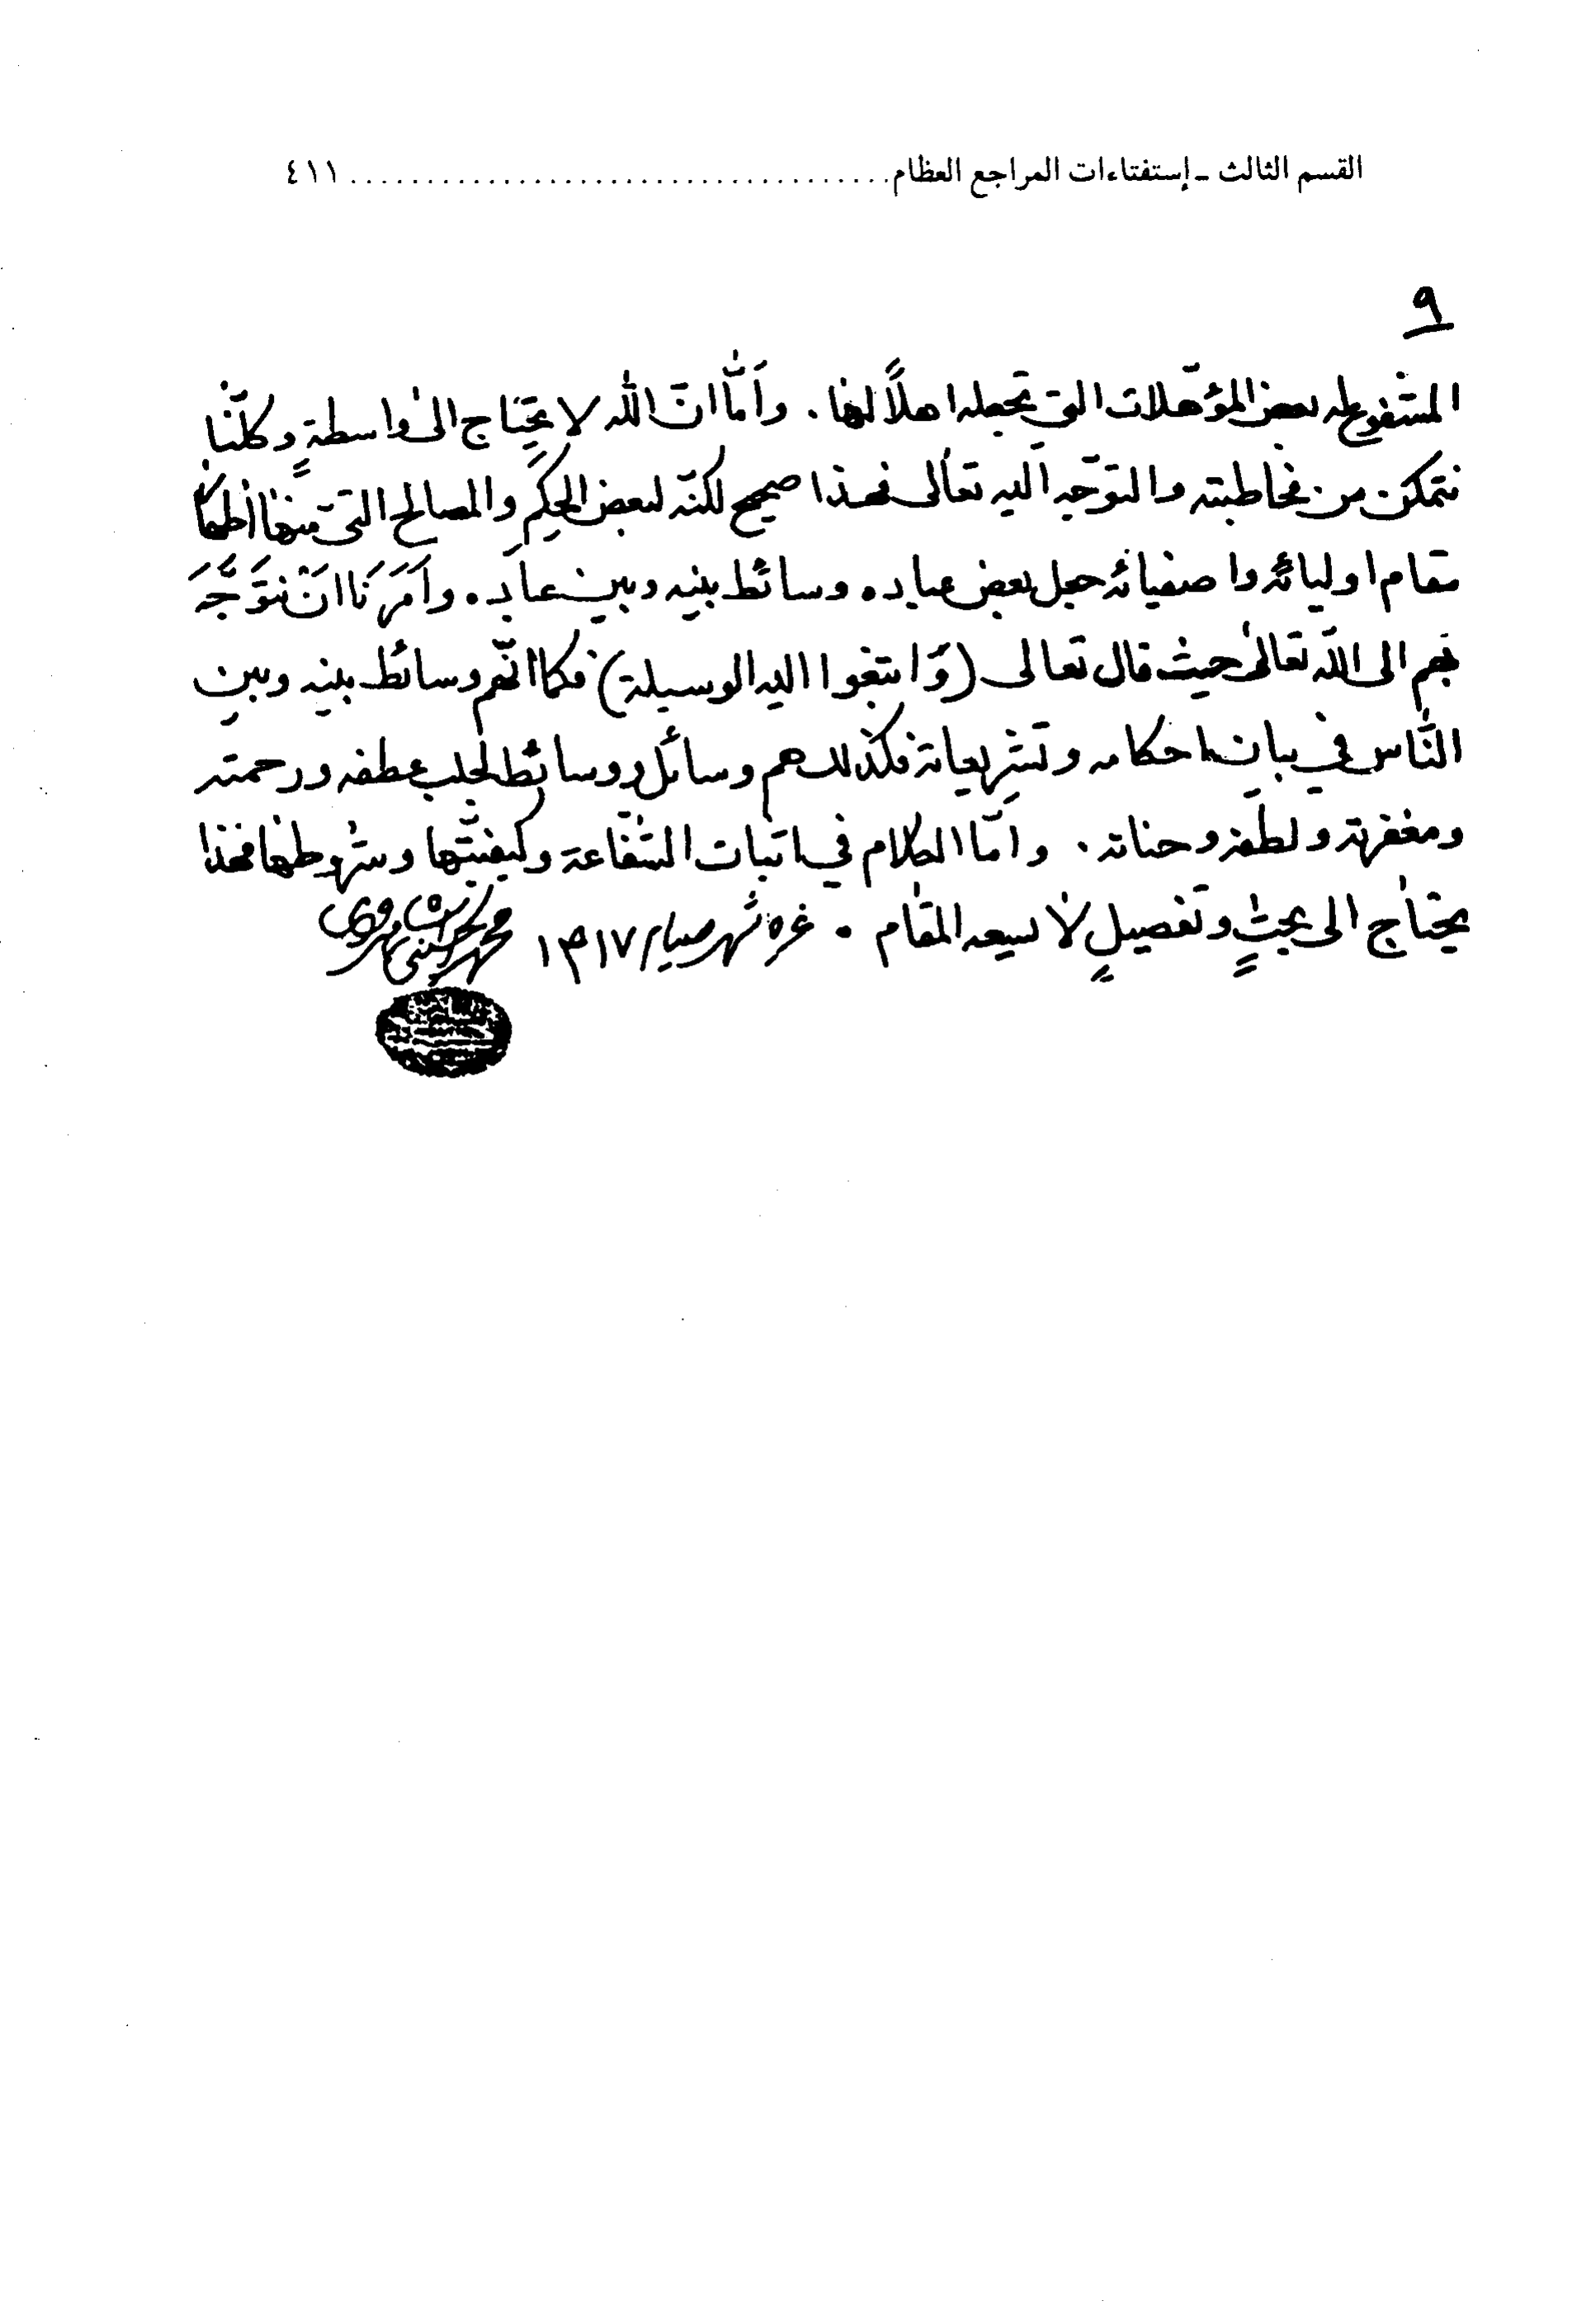 القسم الثالث ـ إستفتاءات المراجع العظام .................................... ٤١١
٩
المشفوع له بعض المؤهّلات التي تجعله اهلاً لها . وَأمّا انّ الله لا يحتاج الى واسطةٍ وكلّنا
نتمكن من مخاطبته والتوجّه اليه تعالى فهذا صحيح لكنّه لبعض الحِكَم والمصالح التي منها اظهار
مقام اوليائه واصفيائه جعل بعض عباده وسائط بينه وبين عباده وأمَرَنَا انْ نتوَجَّهَ
بهم الى الله تعالى حيث قال تعالى (وَابتغوا اليه الوسيلة) فكما انّهم وسائط بينه وبين
النّاس في بيان احكامه وتشريعاته فكذلك هم وسائل ووسائط لجلب عطفه ورحمته
ومغفرته ولطفه وحنانه . وامّا الكلام في اثبات الشفاعة وكيفيّتها وشروطها فهذا
يحتاج الى بحثٍ وتفصيلٍ لا يسعه المقام . غره شهر صيام ١٤١٧ محمد الحسيني الشاهرودي